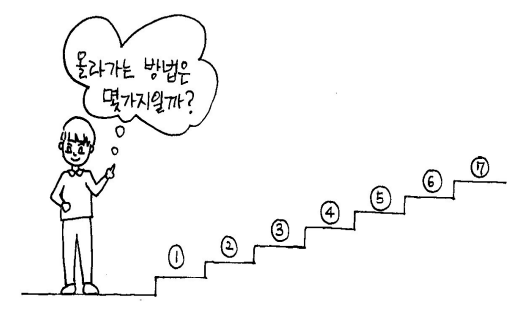 올라가는 방법은
몇가지일까?
① ② ③ ④ ⑤ ⑥ ⑦